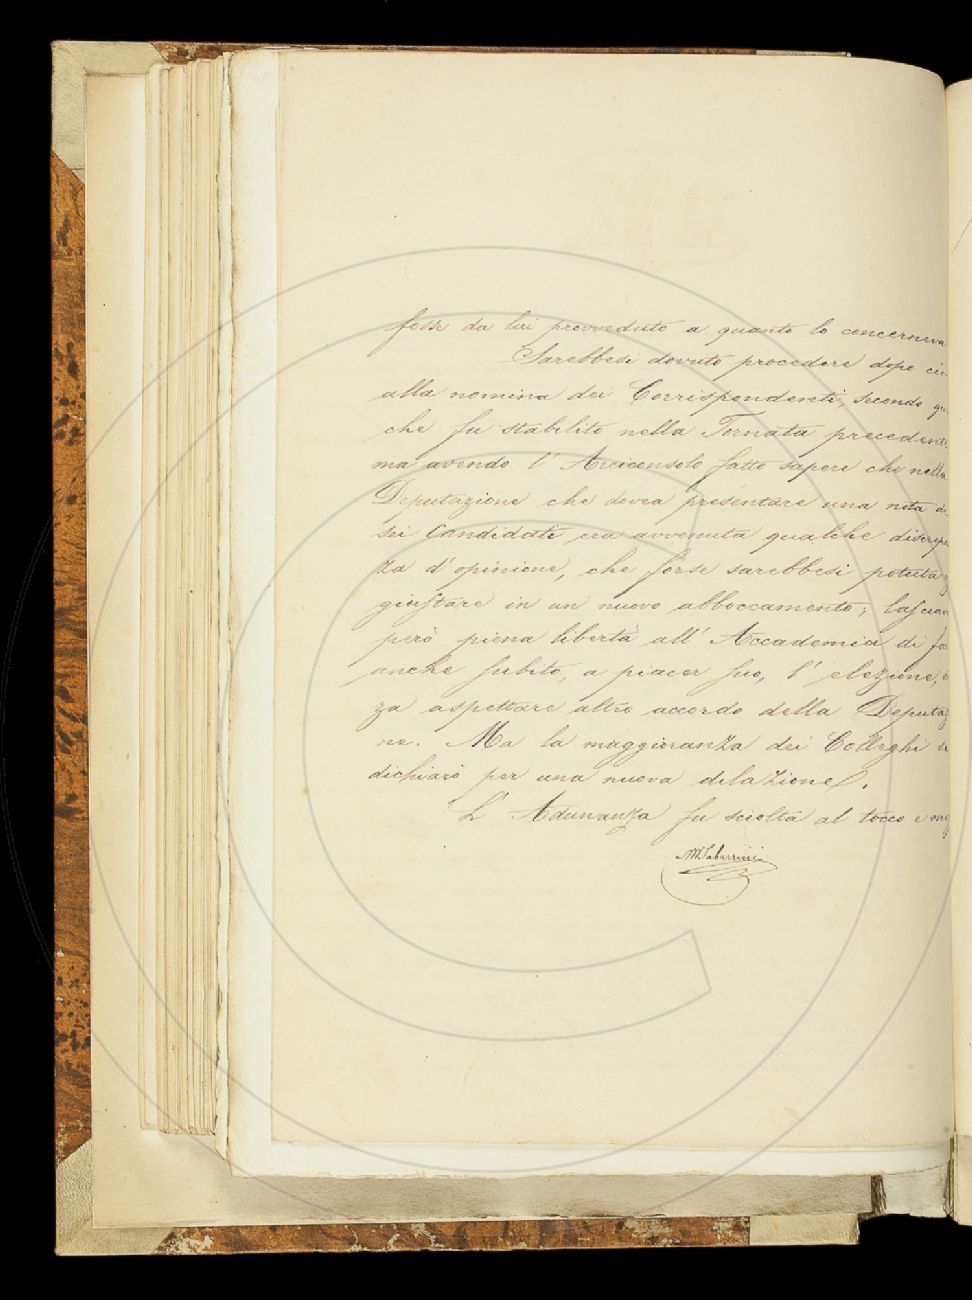 fosse da lui provveduto a quanto lo concerneva
Sarebbesi dovuto procedere dopo ciò
alla nomina dei Corrispondenti, secondo
che fu stabilito nella Tornata precedente
ma avendo l' Arciconsolo fatto sapere che nella
Deputazione che dovea presentare una nota di
sei Candidati era avvenuta qualche discrepan
za d'opinione, che forse sarebbesi potuta
giustare in un nuovo abboccamento; lascian
però piena libertà all' Accademia di far
anche subito, a piacer suo, l' elezione,
za aspettare altro accordo della Deputaz
ne. Ma la maggioranza dei Colleghi
dichiarò per una nuova dilazione.
L' Adunanza fu sciolta al tocco e mez
M Tabarrini